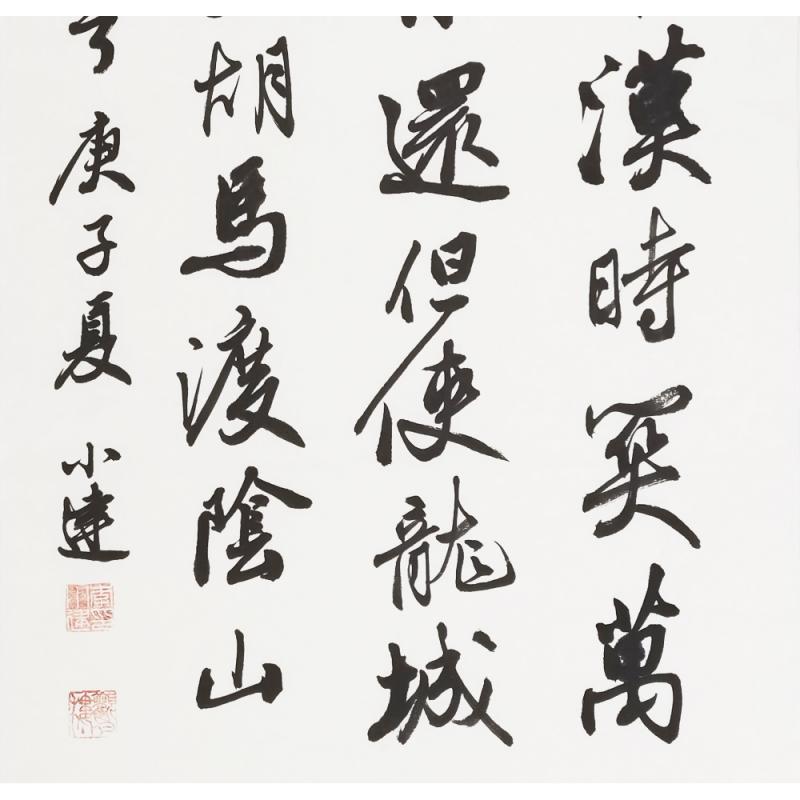 漢時関萬
還但使龍城
胡馬渡陰山
庚子夏 小達